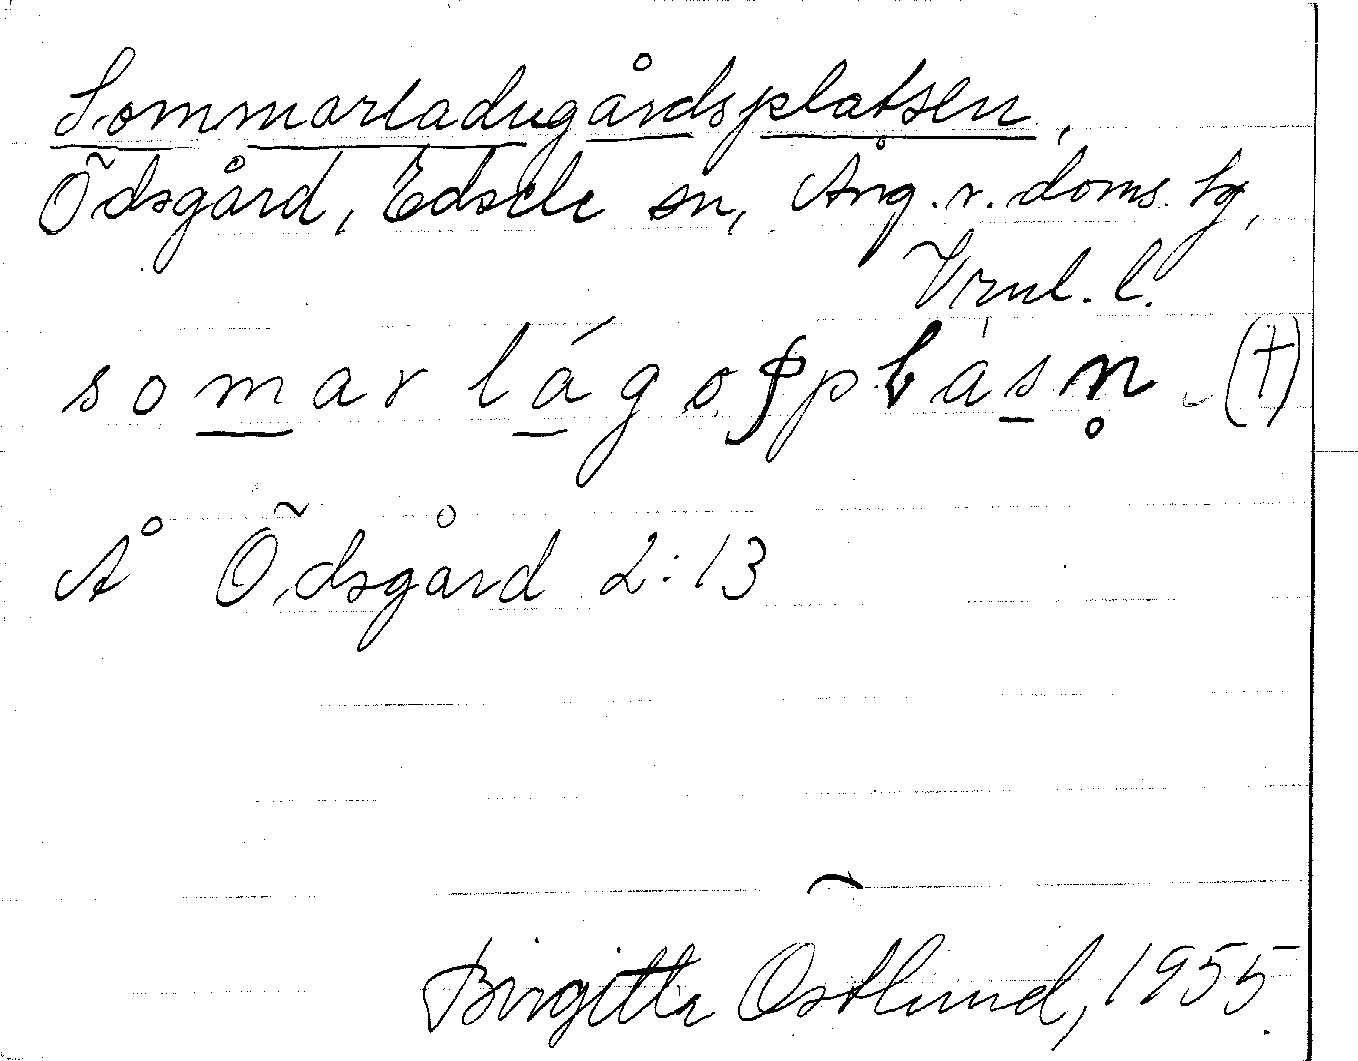 Sommarladugårdsplatsen,
Ödsgård, Edsele sn, Ång. v. doms. tg,
Vrnl. l.
somar lágoṣpplàsn̥ (†)
Å Ödsgård 2:13
Birgitta Östlund, 1955.